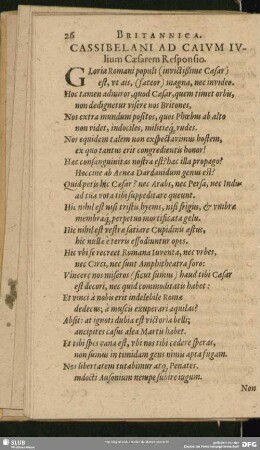 26 BRITANNICA.
CASSIBELANI AD CAIVM IV-
lium Cæsarem Responsio.
GLoria Romani populi (invictissime Cæsar)
est, vt ais, (fateor) magna, nec invideo.
Hoc tamen admiror, quod Cæsar, quem timet orbis,
non dedignetur visere nos Britones,
Nos extra mundum positos, quos Phœbus ab alto
non videt, indociles, militiæq́, rudes.
Nos equidem talem non exspectavimus hostem,
ex quo tantus erit congredientis honor?
Hæc consanguinitas nostra est? hæc illa propago?
Hoccine ab Aenea Dardanidum genus est?
Quid petis hîc Cæsar? nec Arabs, nec Persa, nec Indus
ad tua vota tibi suppeditare queunt.
Hîc nihil est nisi tristis hyems, nisi frigus, & vmbræ
membraq́, perpetuo mortificata gelu.
Hîc nihil est vestræ satiare Cupidinis æstus,
hîc nullæ è terra effodiuntur opes.
Hîc vbi se recreet Romana Iuventa, nec vrbes,
nec Circi, nec sunt Amphitheatra foro:
Vincere nos miseros (sicut sumus) haud tibi Cæsar
est decori, nec quid commoditatis habet:
Et vinci à nobis erit indelebile Romæ
dedecus; à muscis exuperari aquilas?
Absit: at ignoti dubia est victoria belli;
ancipites casus alea Martis habet.
Et tibi spes vana est, vbi nos tibi cedere speras,
non sumus in timidam gens nimis apta fugam.
Nos libertatem tutabimur atq́, Penates,
indocti Ausonium nempe subire iugum.
Non
SLUB
DFG